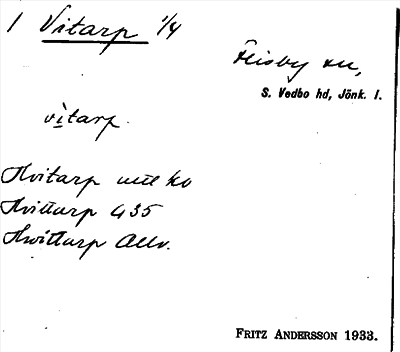 1 Vitarp 1/4
Flisby sn,
S. Vedbo hd, Jönk. l.
vìtarp.
Hvitarp
Hvittarp 435
Hwittarp
FRITZ ANDERSSON 1933.